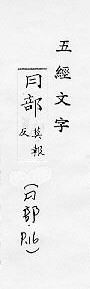 五經文字
冃部莫報反
(冃部 P.16)